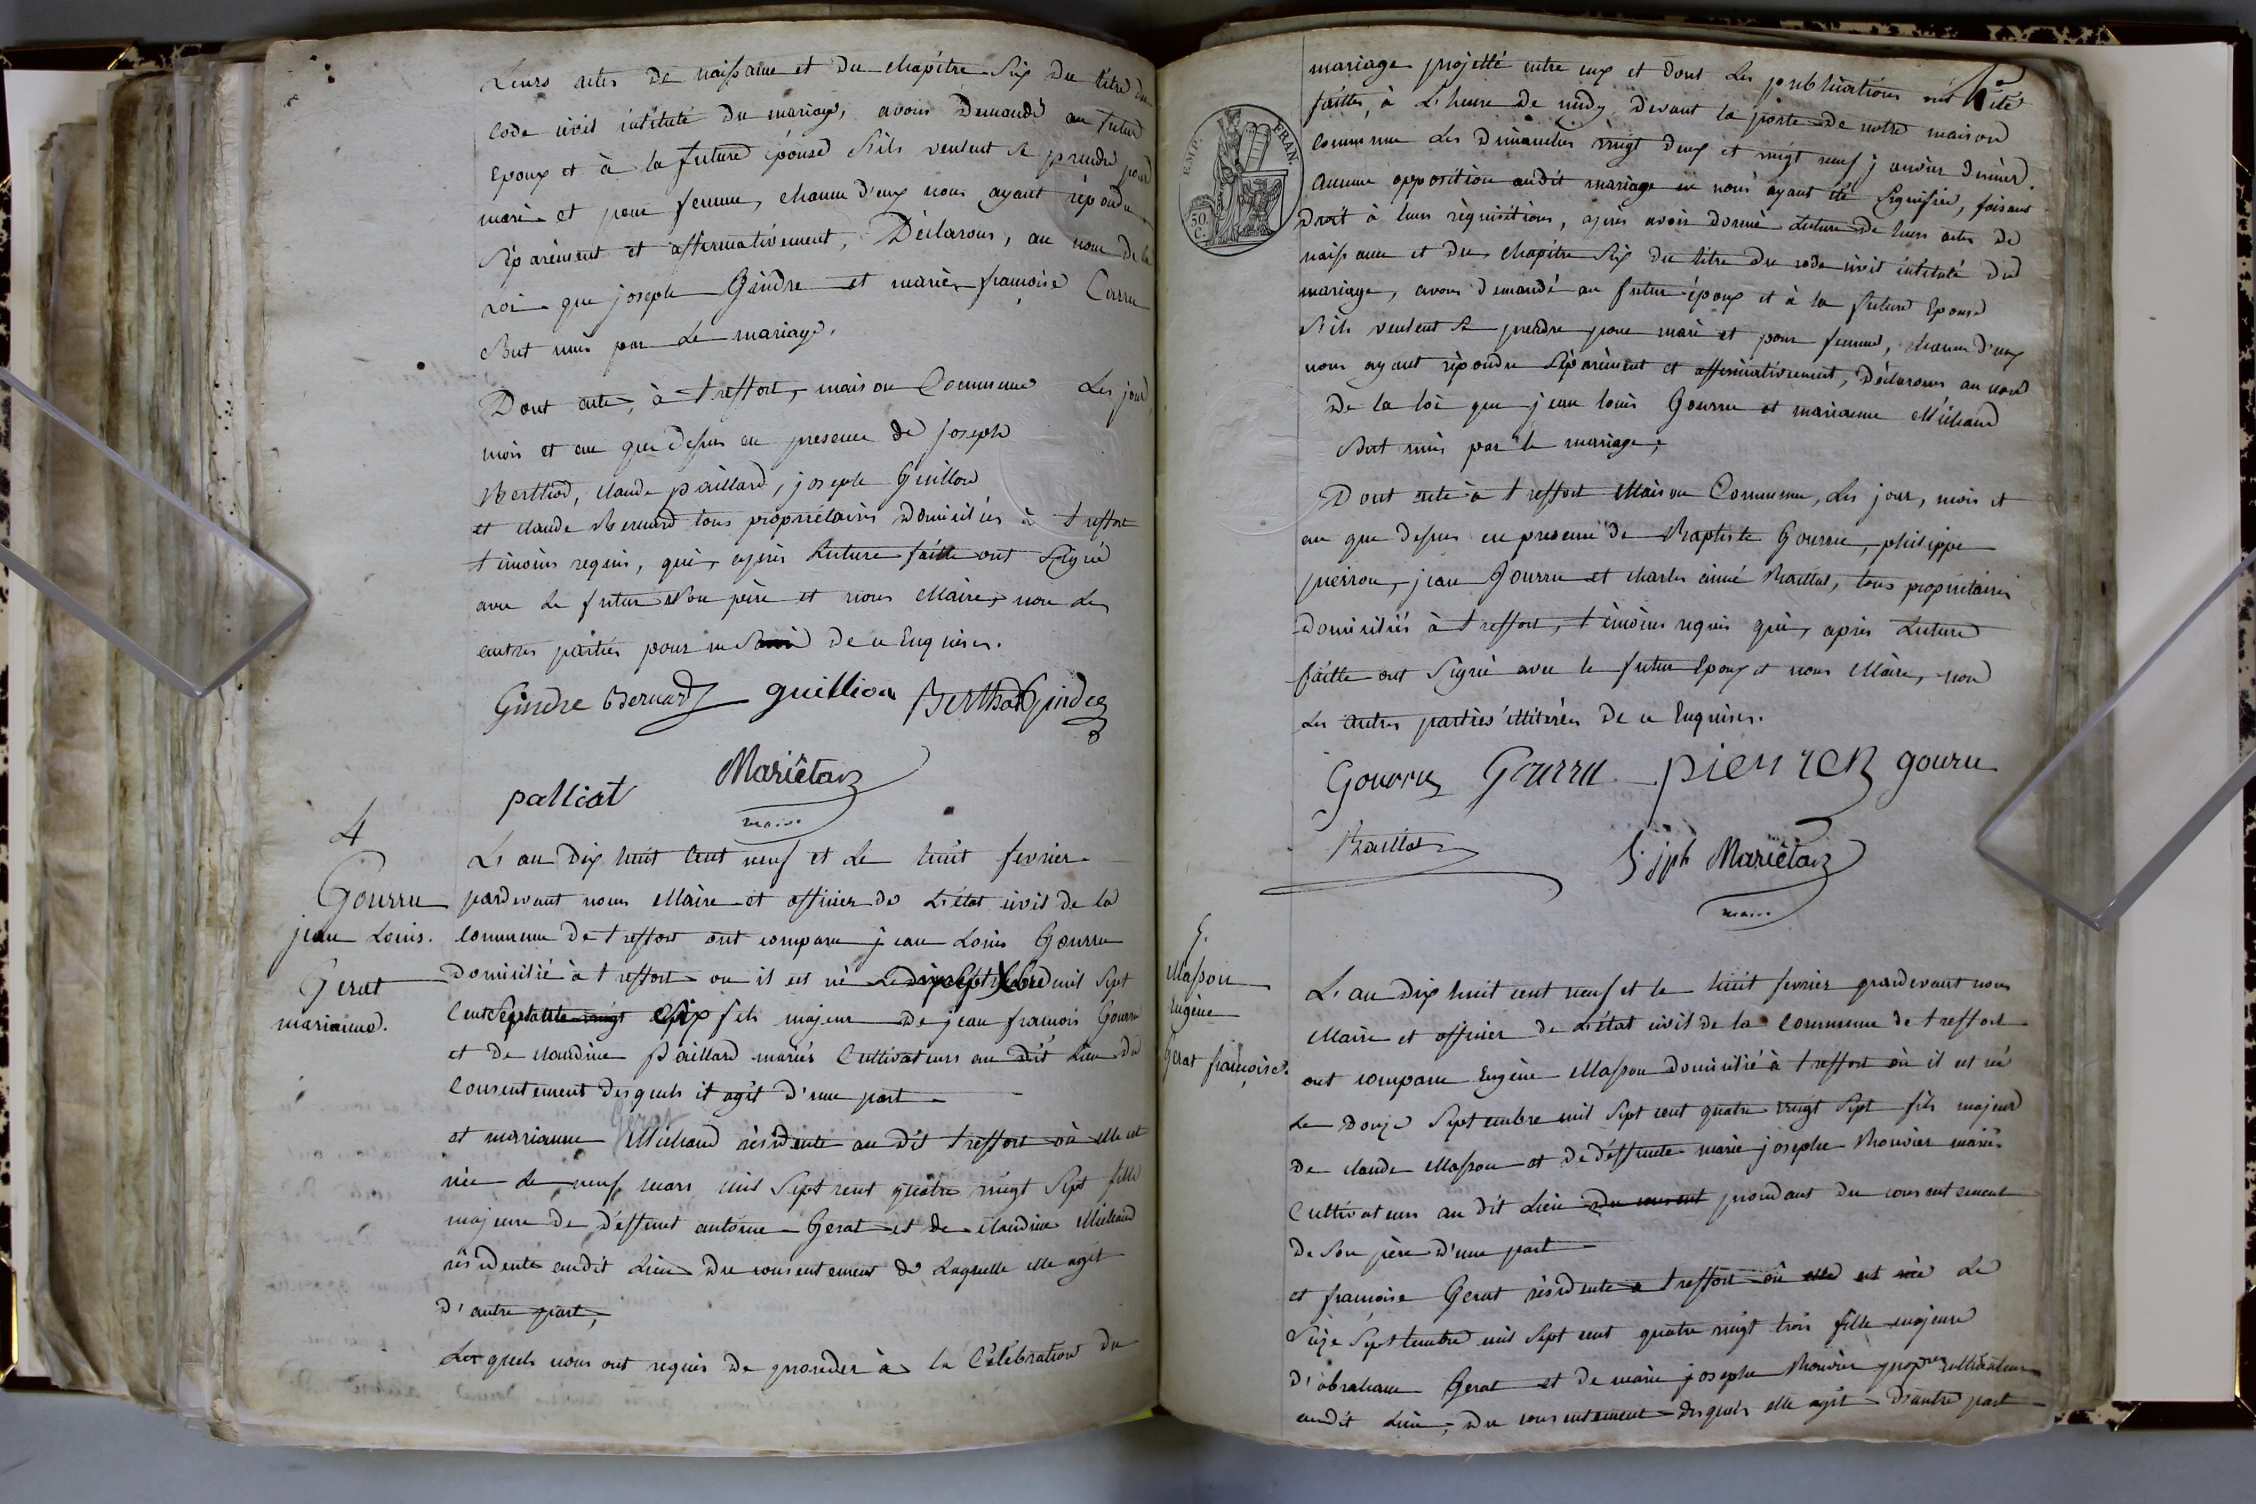 Leurs actes de naissance et du chapitre six du titre du
Code civil intitulé du mariage, avons demandé au futur
Epoux et à la future épouse s'ils veulent se prendre pour
mari et pour femme, chacun d'eux nous ayant répondu
séparément et affirmativement, Déclarons, au nom de la
loi que joseph Gindre et marie françoise Curru
sont unis par le mariage.
Dont acte, à treffort, maison Commune Les jour,
mois et an que dessus en présence de joseph
Berthod, claude paillard, joseph Guillon
et claude Bernard tous propriétaires domiciliés à treffort
témoins requis, qui, après lecture faitte ont signé
avec le futur son père et nous Maire, non les
autres parties pour ne de ce Enquises.
Gindre Bernard guillion Berthod Gindre
palliat Mariétan
maire
4
Gourru
jean Louis.
Gerat
marianne.
L'an dix huit cent neuf et le huit fevrier
pardevant nous Maire et officier de L'état civil de la
commune de treffort ont comparu jean Louis Gourru
domicilié à treffort ou il est né mil sept
cent six fils majeur de jean francois Gourru
et de claudine paillard mariés Cultivateurs au dit Lieu du
Consentement desquels il agit d'une part
Gerat
et marianne Michaud résidente au dit treffort où elle est
née le neuf mars mil sept cent quatre vingt sept fille
majeure de déffunt antoine Gerat et de claudine Michaud
résidente audit Lieu du consentement de Laquelle elle agit
d'autre part,
Lesquels nous ont requis de proceder à la Célébration du
mariage projetté entre eux et dont les publications ont été
faittes à L'heure de midy devant la porte de notre maison
Commune les dimanches vingt deux et vingt neuf janvier dernier.
Aucune opposition audit mariage ne nous ayant été signifiée, faisant
droit à leurs réquisitions, après avoir donné lecture de leurs actes de
naissance et du chapitre six du titre du code civil intitulé du
mariage, avons demandé au futur époux et à la future Epouse
s'ils veulent se prendre pour mari et pour femme, chacun d'eux
nous ayant répondu séparément et affirmativement, Déclarons au nom
de la loi que jean louis Gourru et marianne Michaud
sont unis par le mariage;
Dont acte à treffort Maison Commune, les jour, mois et
an que dessus en presence de Baptiste Gourru, philippe
pierron, jean Gourru et charles aimé Raillat, tous propriétaires
domiciliés à treffort, témoins requis qui, après lecture
faitte ont signé avec le futur Epoux et nous Maire, non
les autres parties illitérées de ce Enquises.
Gourru Gourru pierron gouru
Raillat S. jph Mariétan
maire
EMP. FRAN.
50 C.
5.
Masson
Eugène
Gerat françoise.
L'an dix huit cent neuf et le huit fevrier pardevant nous
Maire et officier de L'état civil de la commune de treffort
ont comparu Eugène Masson domicilié à treffort où il est né
le douze septembre mil sept cent quatre vingt sept fils majeur
de claude Masson et de déffunte marie josephe Bouvier mariés
Cultivateurs au dit Lieu du consent procédant du consentement
de son père d'une part
et françoise Gerat résidente à treffort où elle est née le
seize septembre mil sept cent quatre vingt trois fille majeure
d'abraham Gerat et de marie josephe Bouvier prop.res cultivateurs
audit Lieu, du consentement desquels elle agit d'autre part